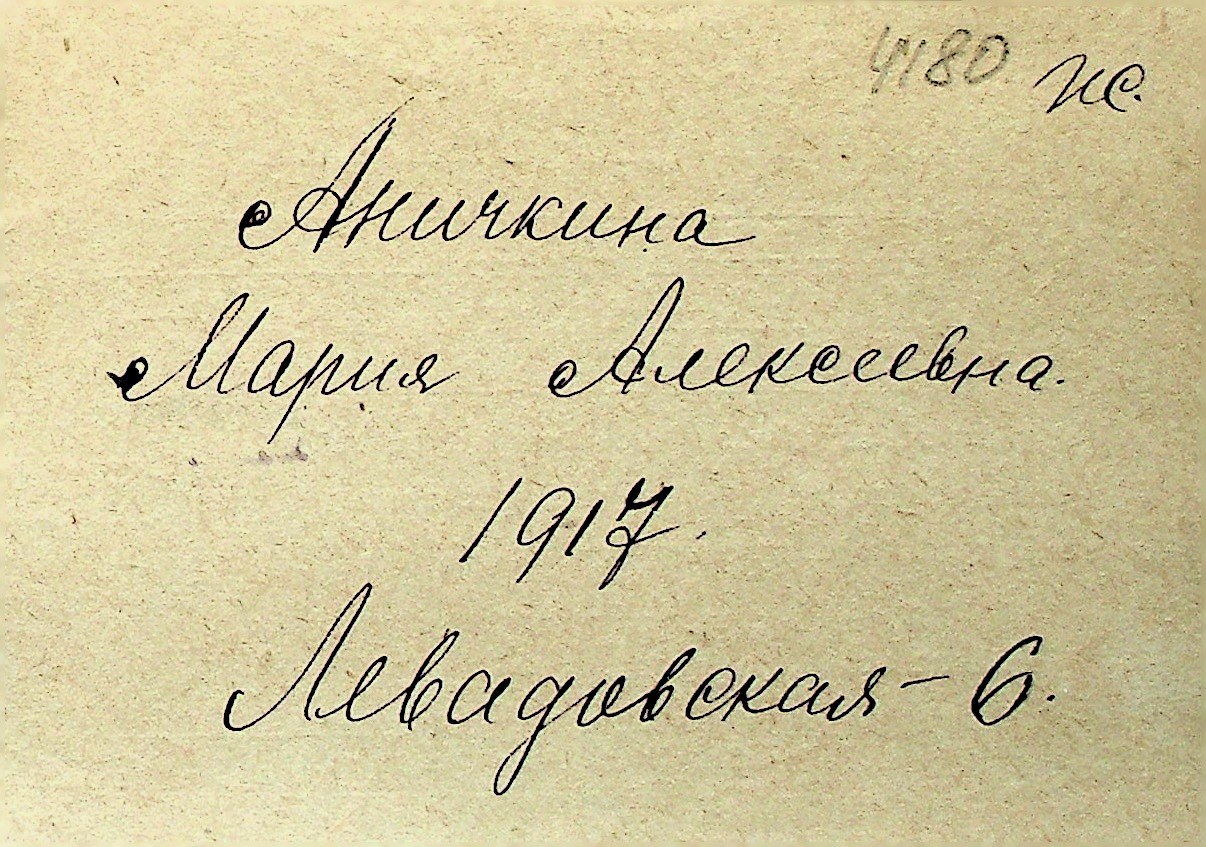 4180 ис.
Аничкина
Мария Алексеевна.
1917.
Левадовская - 6.